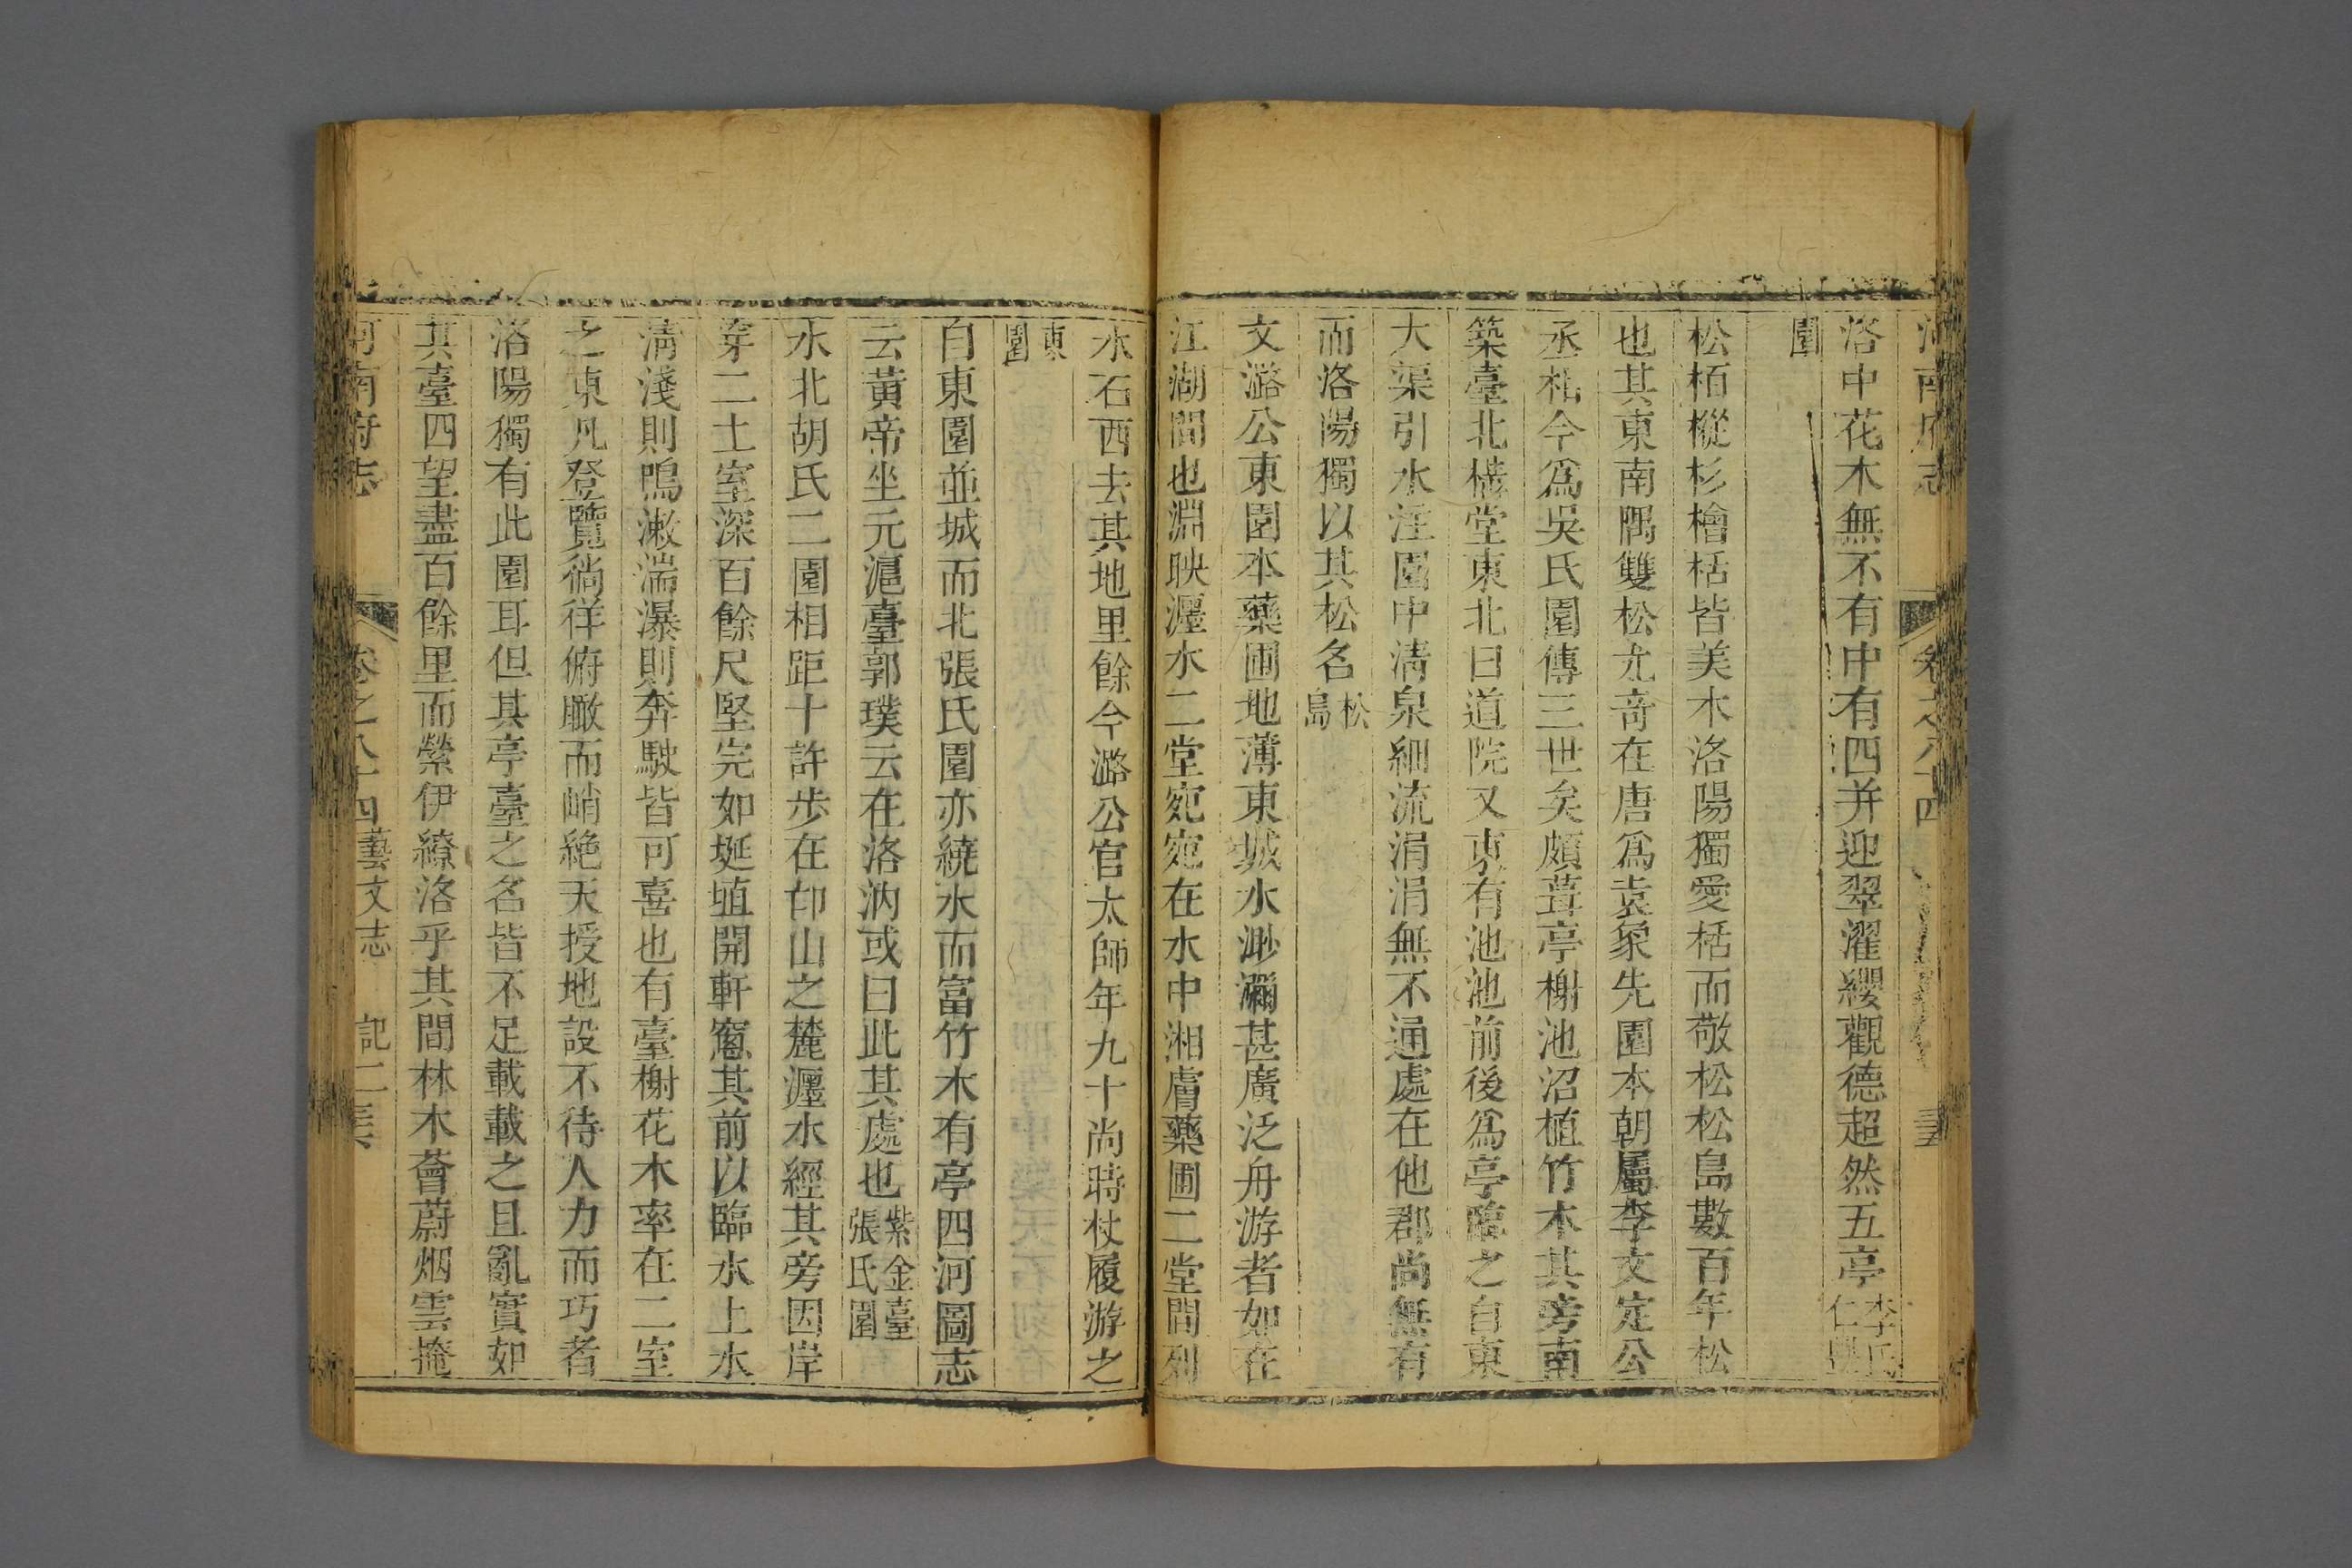 河南府志 卷之八十四
洛中花木無不有中有四并迎翠濯纓觀德超然五亭李氏仁豐
園
松栢樅杉檜栝皆美木洛陽獨愛栝而敬松松島數百年松
也其東南隅雙松尤奇在唐爲袁象先園本朝屬李文定公
丞相今爲吳氏園傳三世矣頗葺亭榭池沼植竹木其旁南
築臺北構堂東北曰道院又東有池池前後爲亭臨之自東
大渠引水注園中清泉細流涓涓無不通處在他郡尚無有
而洛陽獨以其松名松島
文潞公東園本藥圃地薄東城水渺瀰甚廣泛舟游者如在
江湖間也淵映瀍水二堂宛宛在水中湘膚藥圃二堂間列
水石西去其地里餘今潞公官太師年九十尚時杖履游之
東園
自東園並城而北張氏園亦繞水而富竹木有亭四河圖志
云黃帝坐元滬臺郭璞云在洛汭或曰此其處也紫金臺張氏園
水北胡氏二園相距十許步在邙山之麓瀍水經其旁因岸
穿二土室深百餘尺堅完如埏埴開軒窻其前以臨水上水
清淺則鳴漱湍瀑則奔駛皆可喜也有臺榭花木率在二室
之東凡登覽徜徉俯瞰而峭絶天授地設不待人力而巧者
洛陽獨有此園耳但其亭臺之名皆不足載載之且亂實如
其臺四望盡百餘里而縈伊繚洛乎其間林木薈蔚烟雲掩
河南府志 卷之八十四藝文志 記二